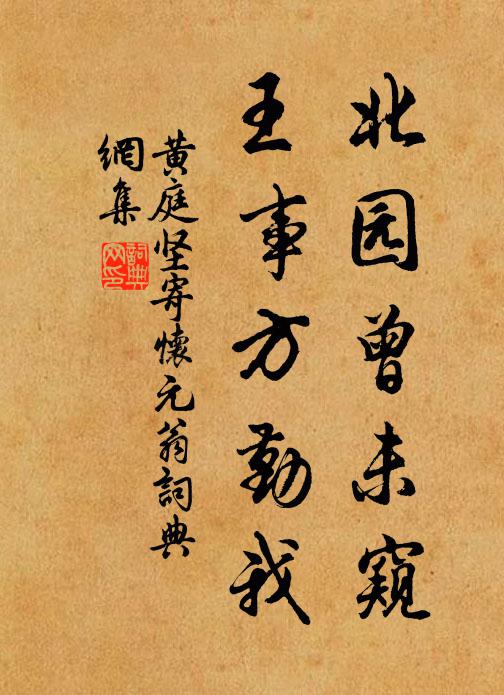 北园曾未窥
王事方勤我
黄庭坚寄懷元翁詞典
網集
詞典
网印